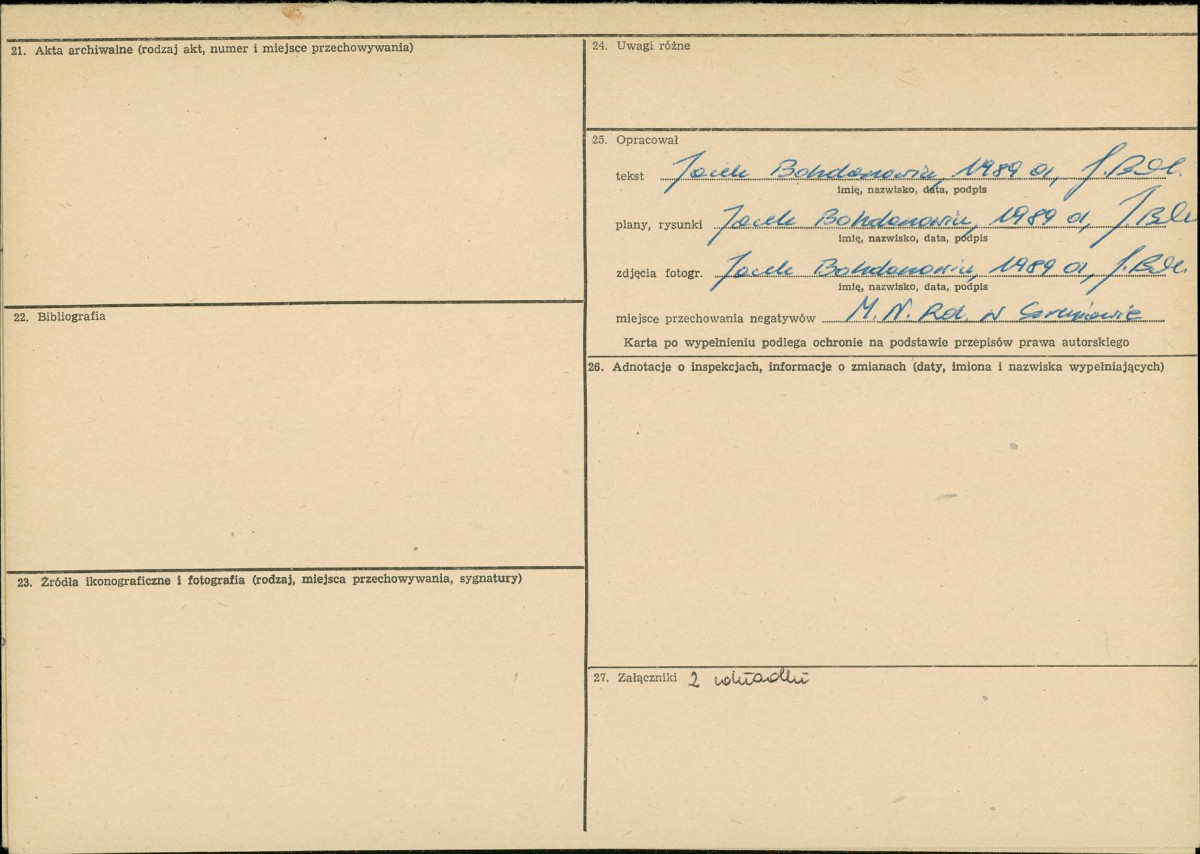 21. Akta archiwalne (rodzaj akt, numer i miejsce przechowywania)
22. Bibliografia
23. Źródła ikonograficzne i fotografia (rodzaj, miejsca przechowywania, sygnatury)
24. Uwagi różne
25. Opracował
tekst Jacek Bohdanowicz, 1989 r.,
imię, nazwisko, data, podpis
plany, rysunki Jacek Bohdanowicz, 1989 r.,
imię, nazwisko, data, podpis
zdjęcia fotogr. Jacek Bohdanowicz, 1989 r.,
imię, nazwisko, data, podpis
miejsce przechowania negatywów M. N. Rol. w Szreniawie
Karta po wypełnieniu podlega ochronie na podstawie przepisów prawa autorskiego
26. Adnotacje o inspekcjach, informacje o zmianach (daty, imiona i nazwiska wypełniających)
27. Załączniki 2 wkładki